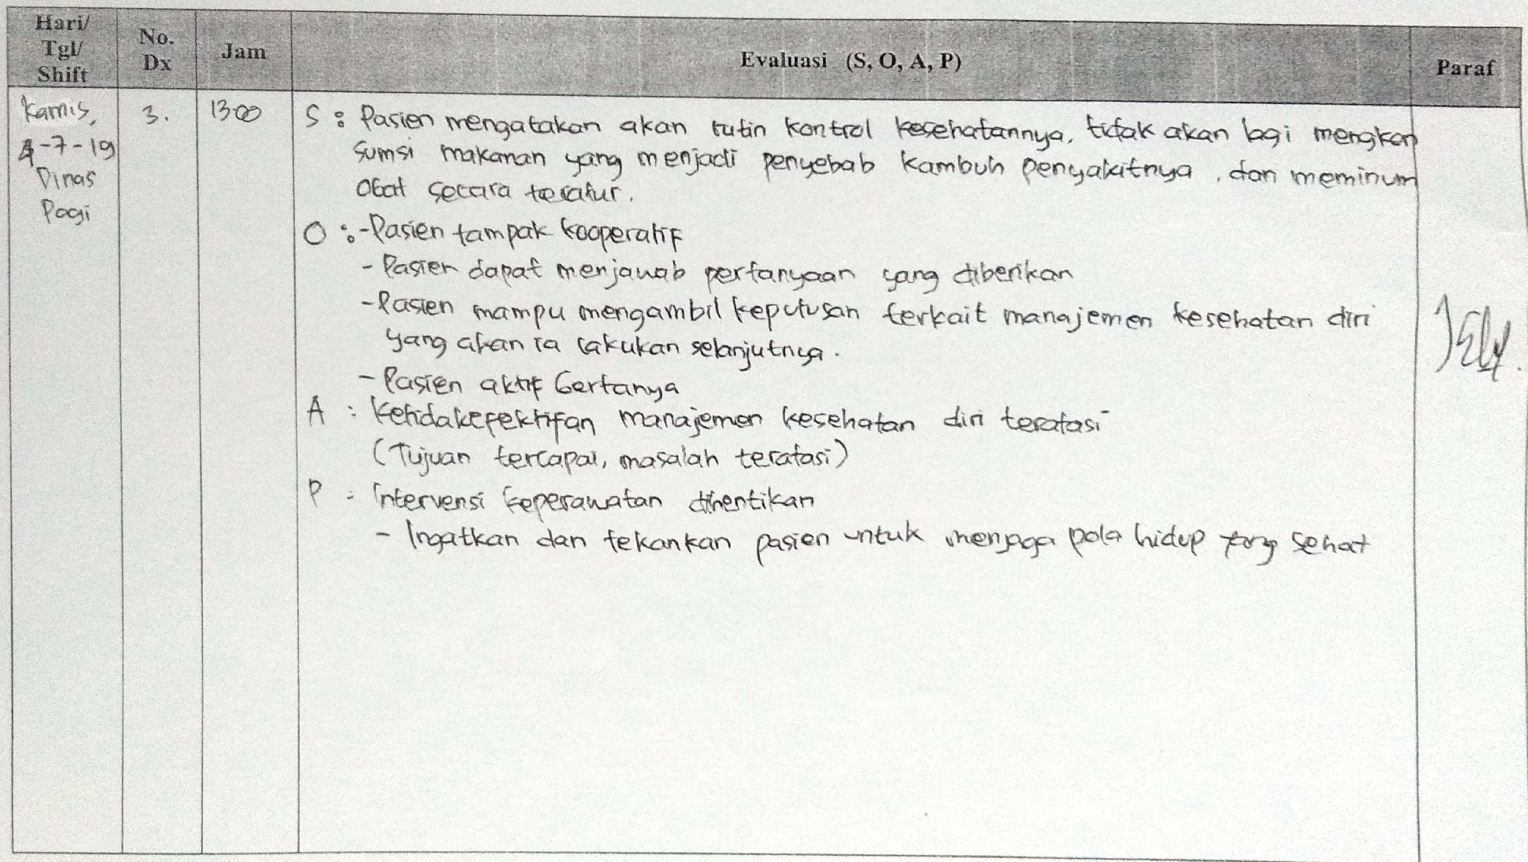 Hari/
Tgl/
Shift
No.
Dx
Jam
Evaluasi (S, O, A, P)
Paraf
Kamis,
4-7-19
Dinas
Pagi
3.
13.00
S : Pasien mengatakan akan rutin kontrol kesehatannya, tidak akan lagi mengkon
sumsi makanan yang menjadi penyebab kambuh penyakitnya, dan meminum
obat secara teratur.
O : - Pasien tampak kooperatif
- Pasien dapat menjawab pertanyaan yang diberikan
- Pasien mampu mengambil keputusan terkait manajemen kesehatan diri
yang akan ia lakukan selanjutnya.
- Pasien aktif bertanya
A : Ketidakefektifan manajemen kesehatan diri teratasi
(Tujuan tercapai, masalah teratasi)
P : Intervensi keperawatan dihentikan
- Ingatkan dan tekankan pasien untuk menjaga pola hidup yang sehat